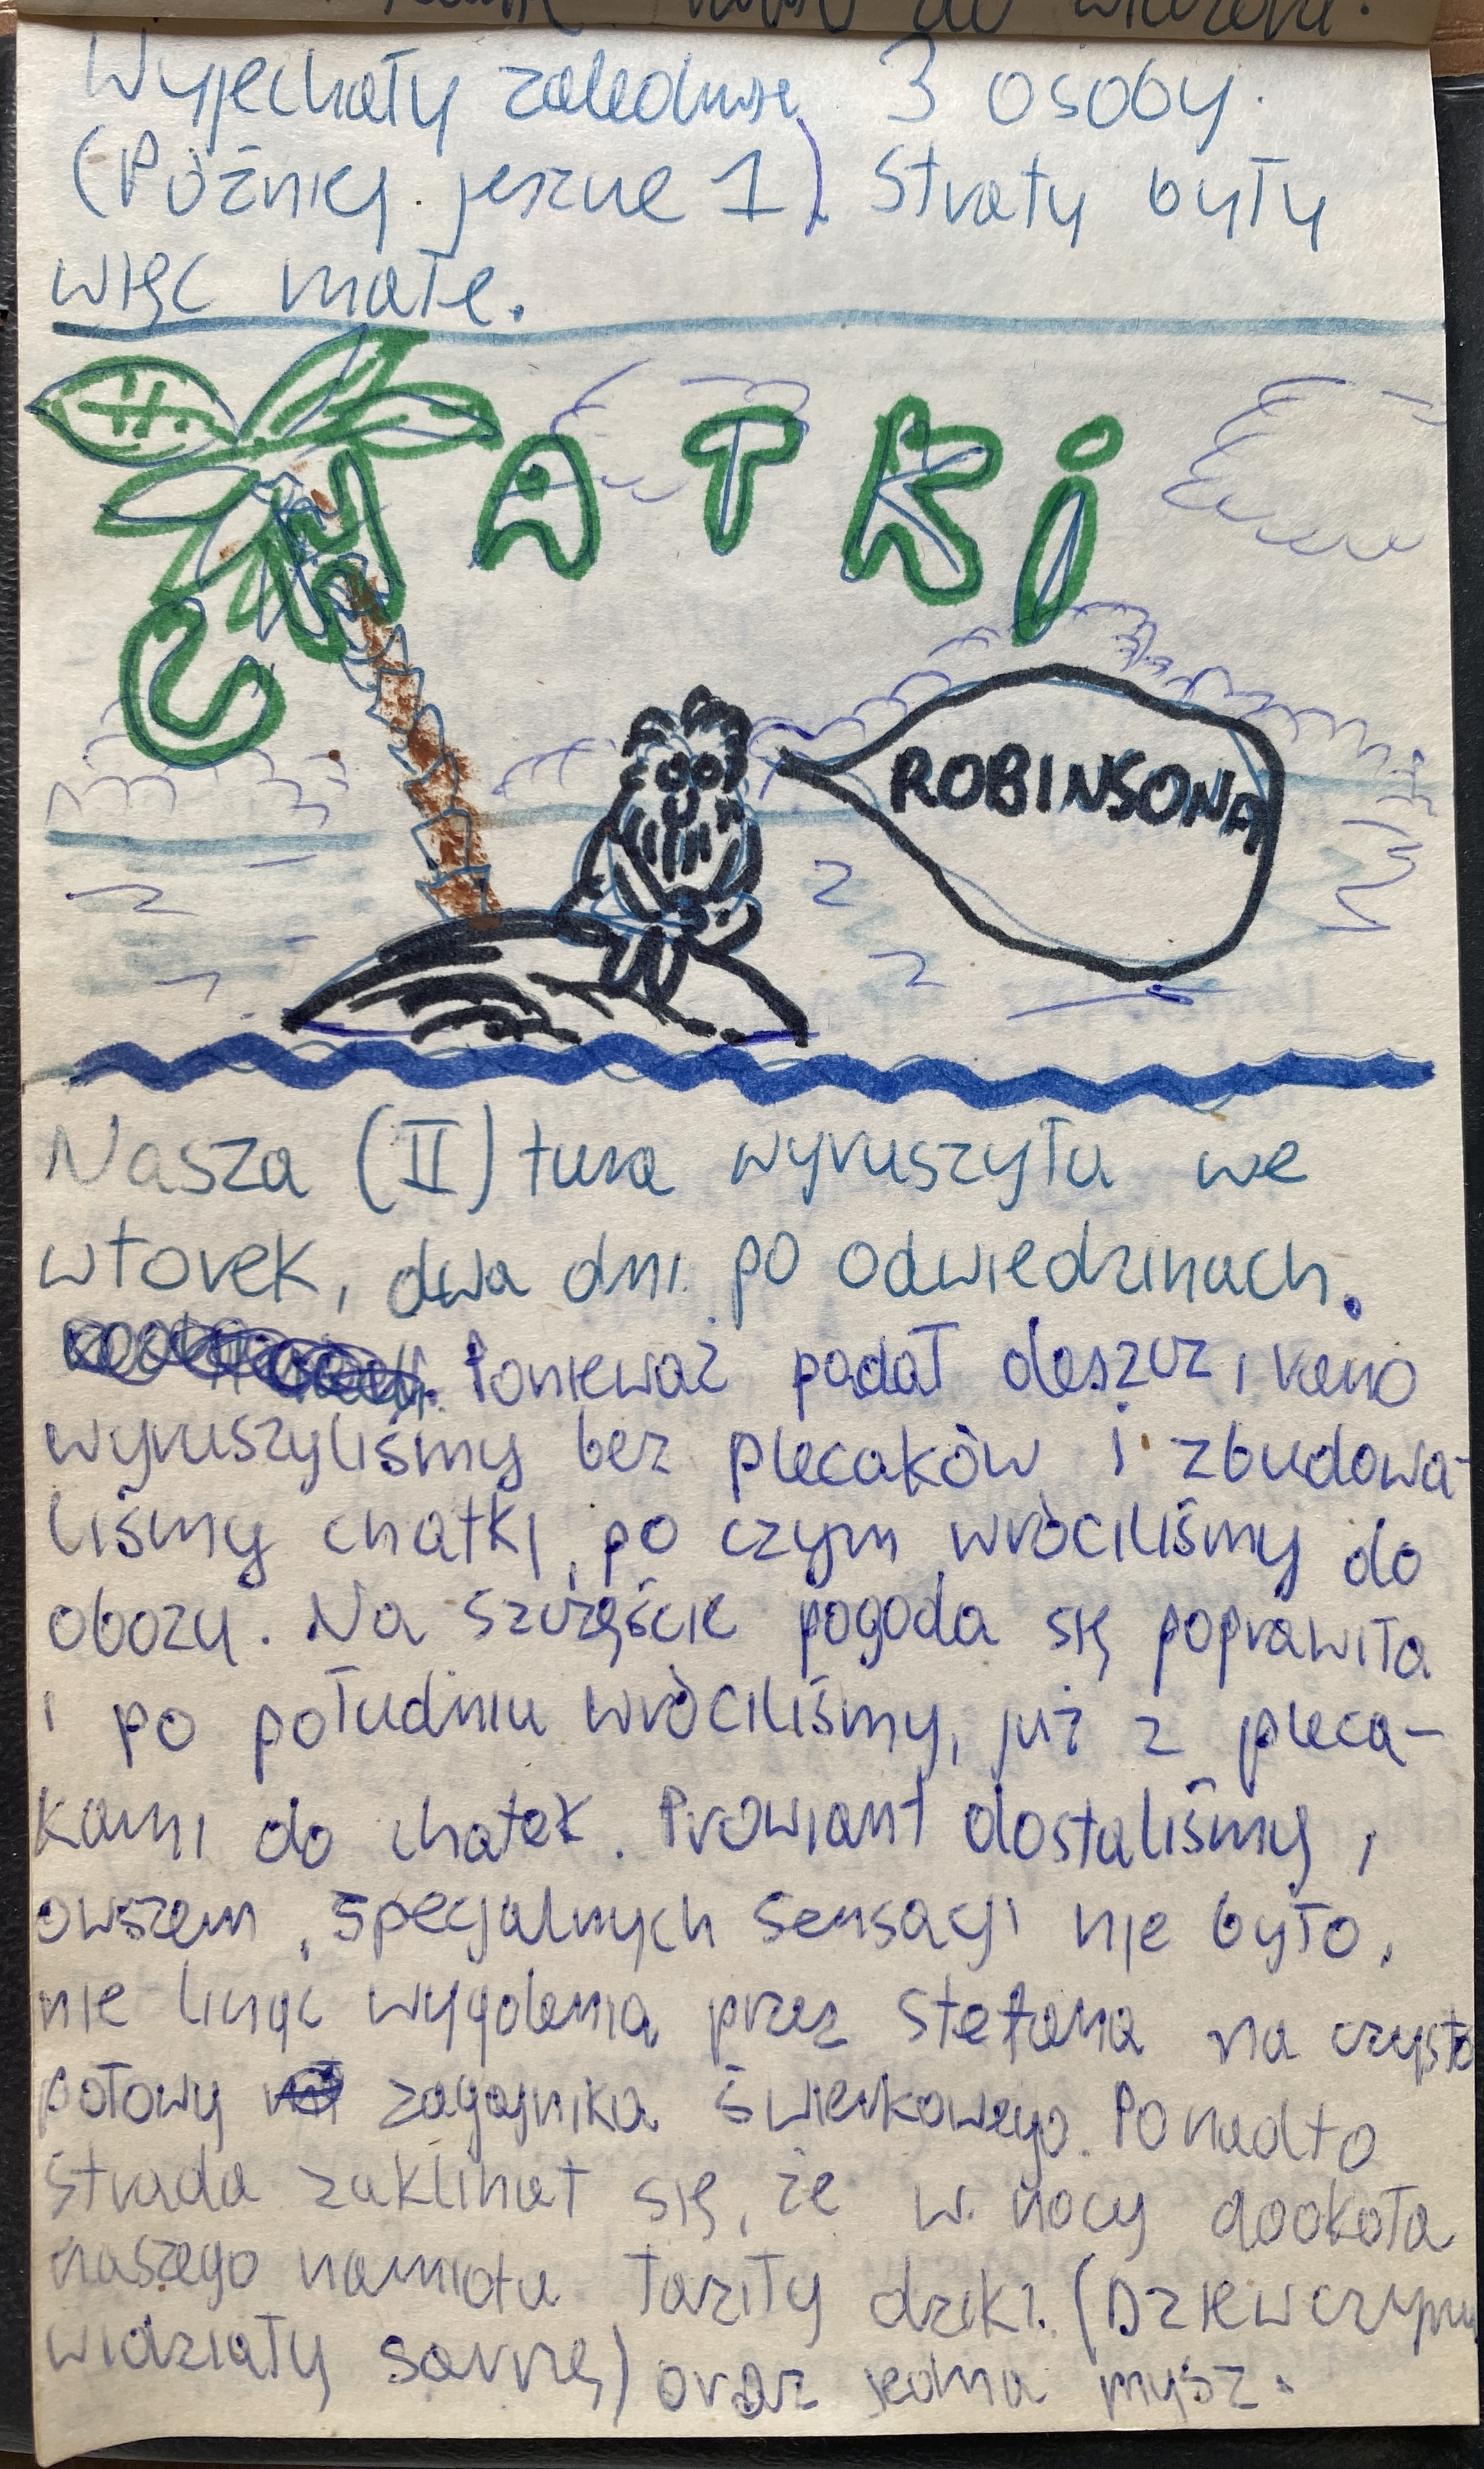 do
Wyjechały zaledwie 3 osoby.
(Później jeszcze 1). Straty były
więc małe.
CHATKi
ROBINSONA
Nasza (II) tura wyruszyła we
wtorek, dwa dni po odwiedzinach.
Ponieważ padał deszcz, rano
wyruszyliśmy bez plecaków i zbudowa-
liśmy chatki, po czym wróciliśmy do
obozu. Na szczęście pogoda się poprawiła
i po południu wróciliśmy, już z pleca-
kami do chatek. Prowiant dostaliśmy,
owszem, specjalnych sensacji nie było,
nie licząc wygolenia przez Stefana na czysto
połowy zagajnika świerkowego. Ponadto
Strada zaklinał się, że w nocy dookoła
naszego namiotu łaziły dziki. (Dziewczyny
widziały sarnę) oraz jedna mysz.